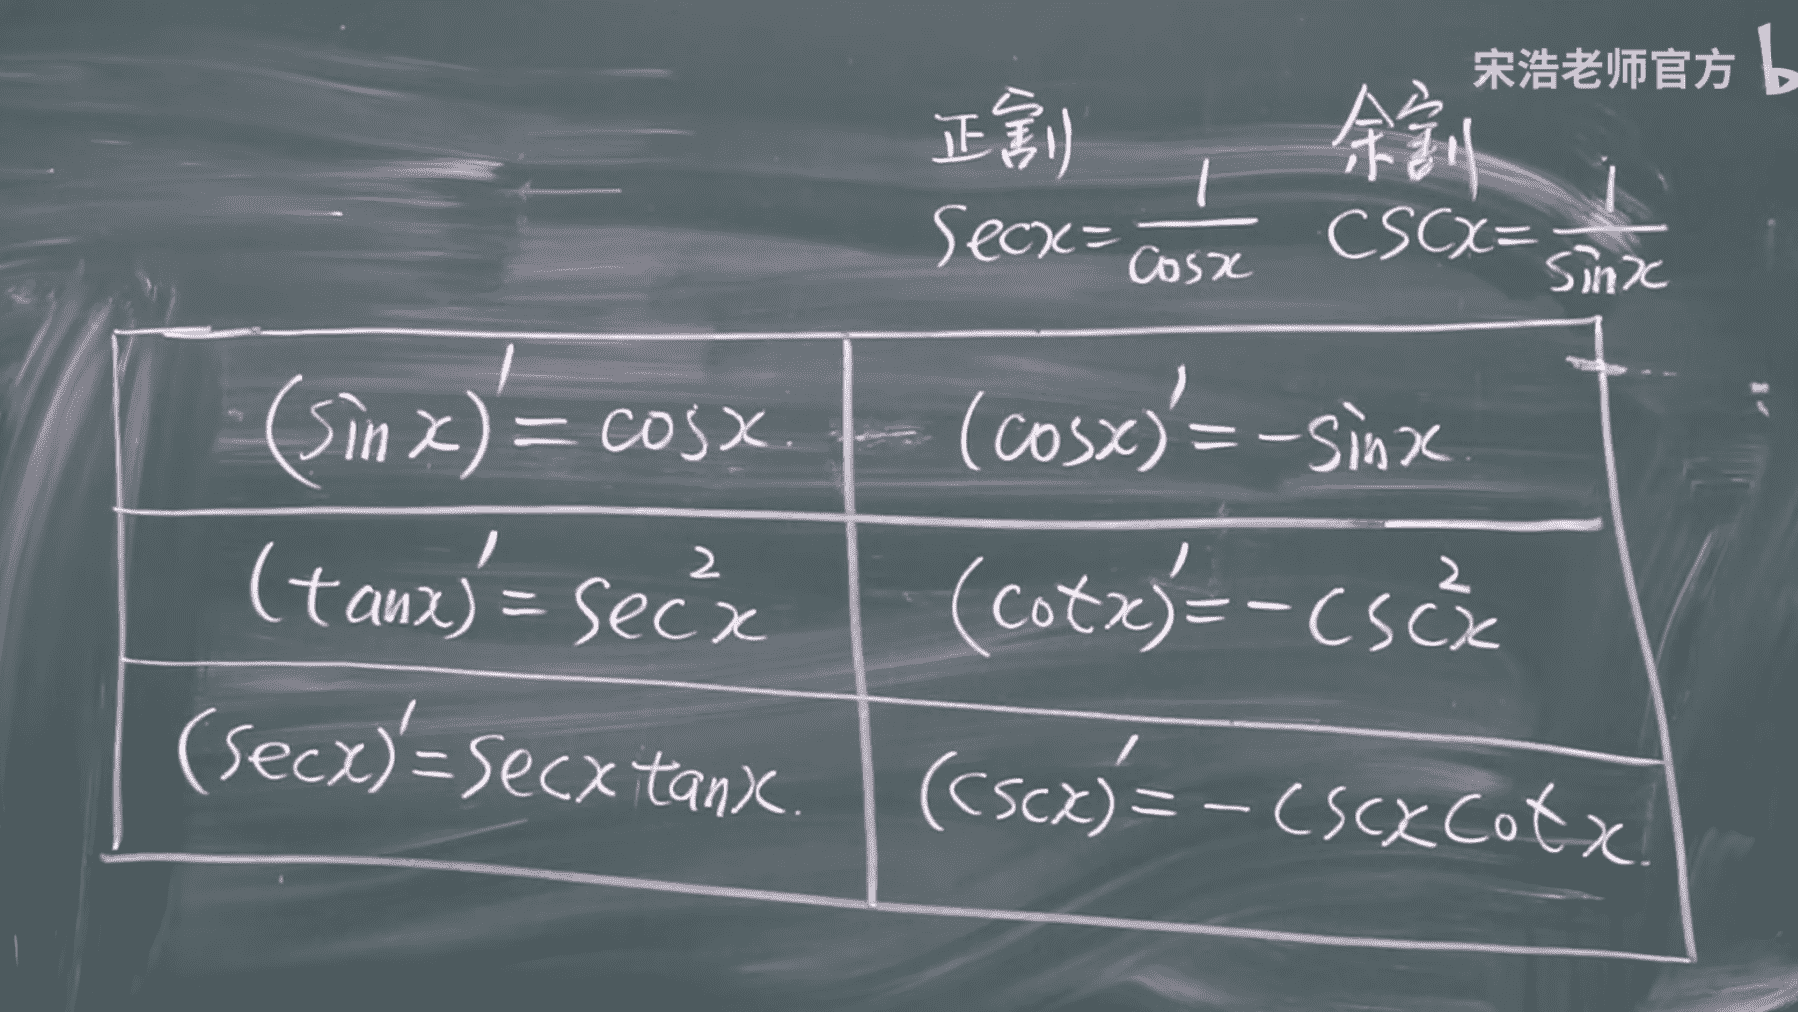 宋浩老师官方
正割 余割
secx=1/cosx cscx=1/sinx
(sinx)'=cosx. (cosx)'=-sinx.
(tanx)'=sec²x (cotx)'=-csc²x
(secx)'=secx tanx. (cscx)'=-cscxcotx.